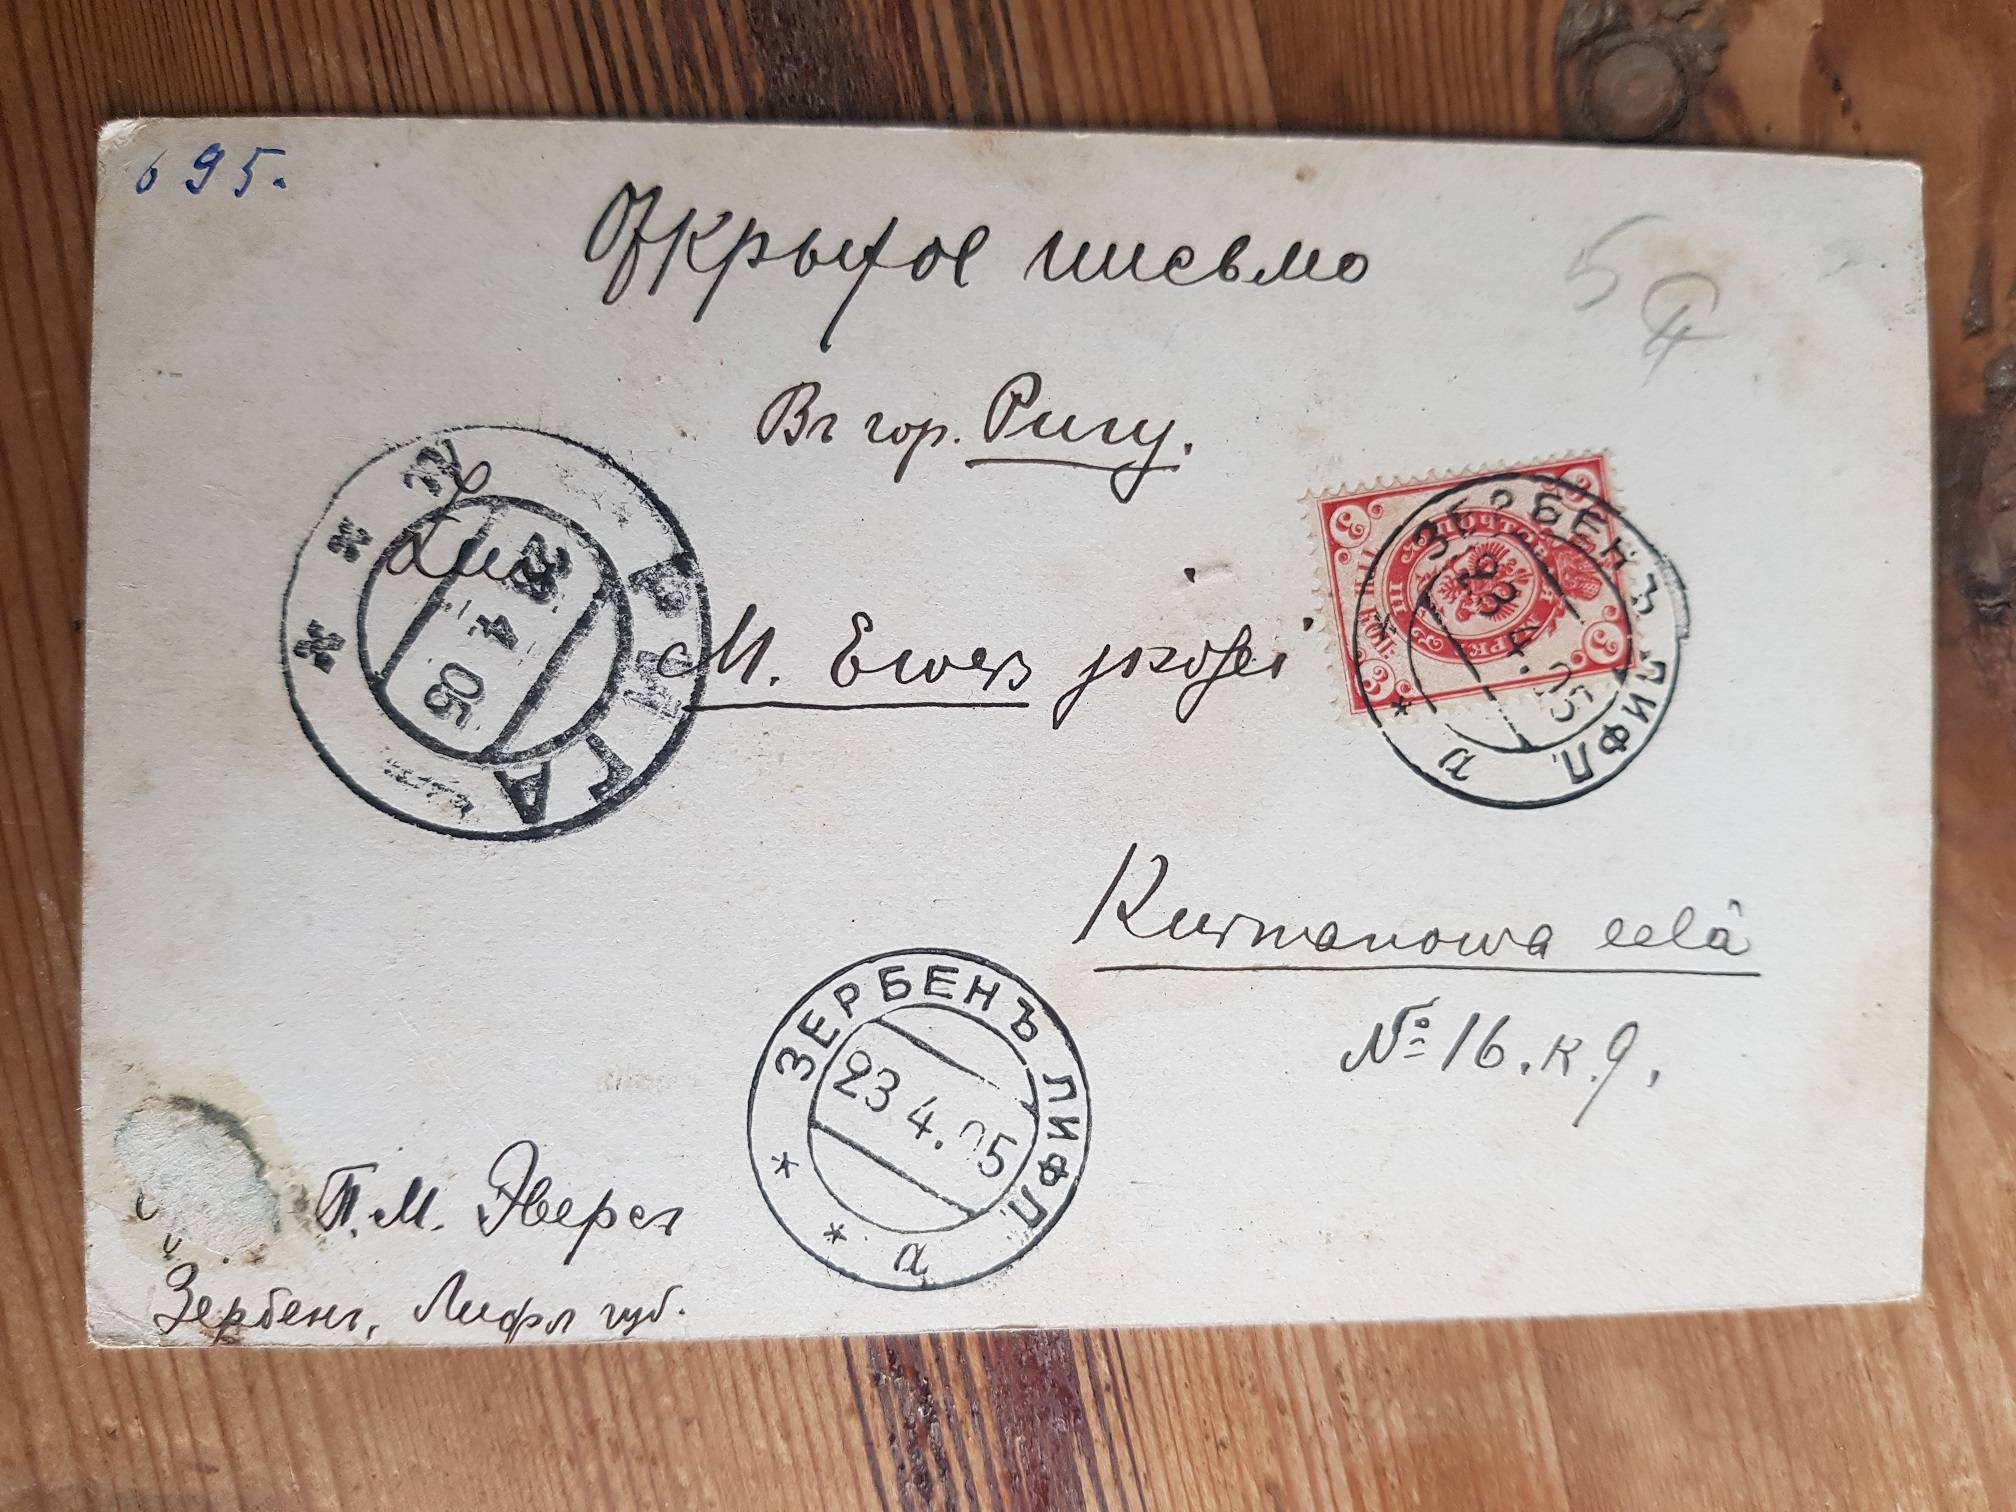 695.
Открытое письмо
Въ гор. Ригу.
5
РИГА
4 05
M. Ewers
3 3
ПОЧТОВАЯ МАРКА
3 3
ЗЕРБЕНЪ ЛИФЛ.
23 4.05
а
Kurmanowa eelâ
№ 16. к. 9.
ЗЕРБЕНЪ ЛИФЛ.
23 4.05
а
П. М. Эверсъ
Зербенъ, Лифл губ.